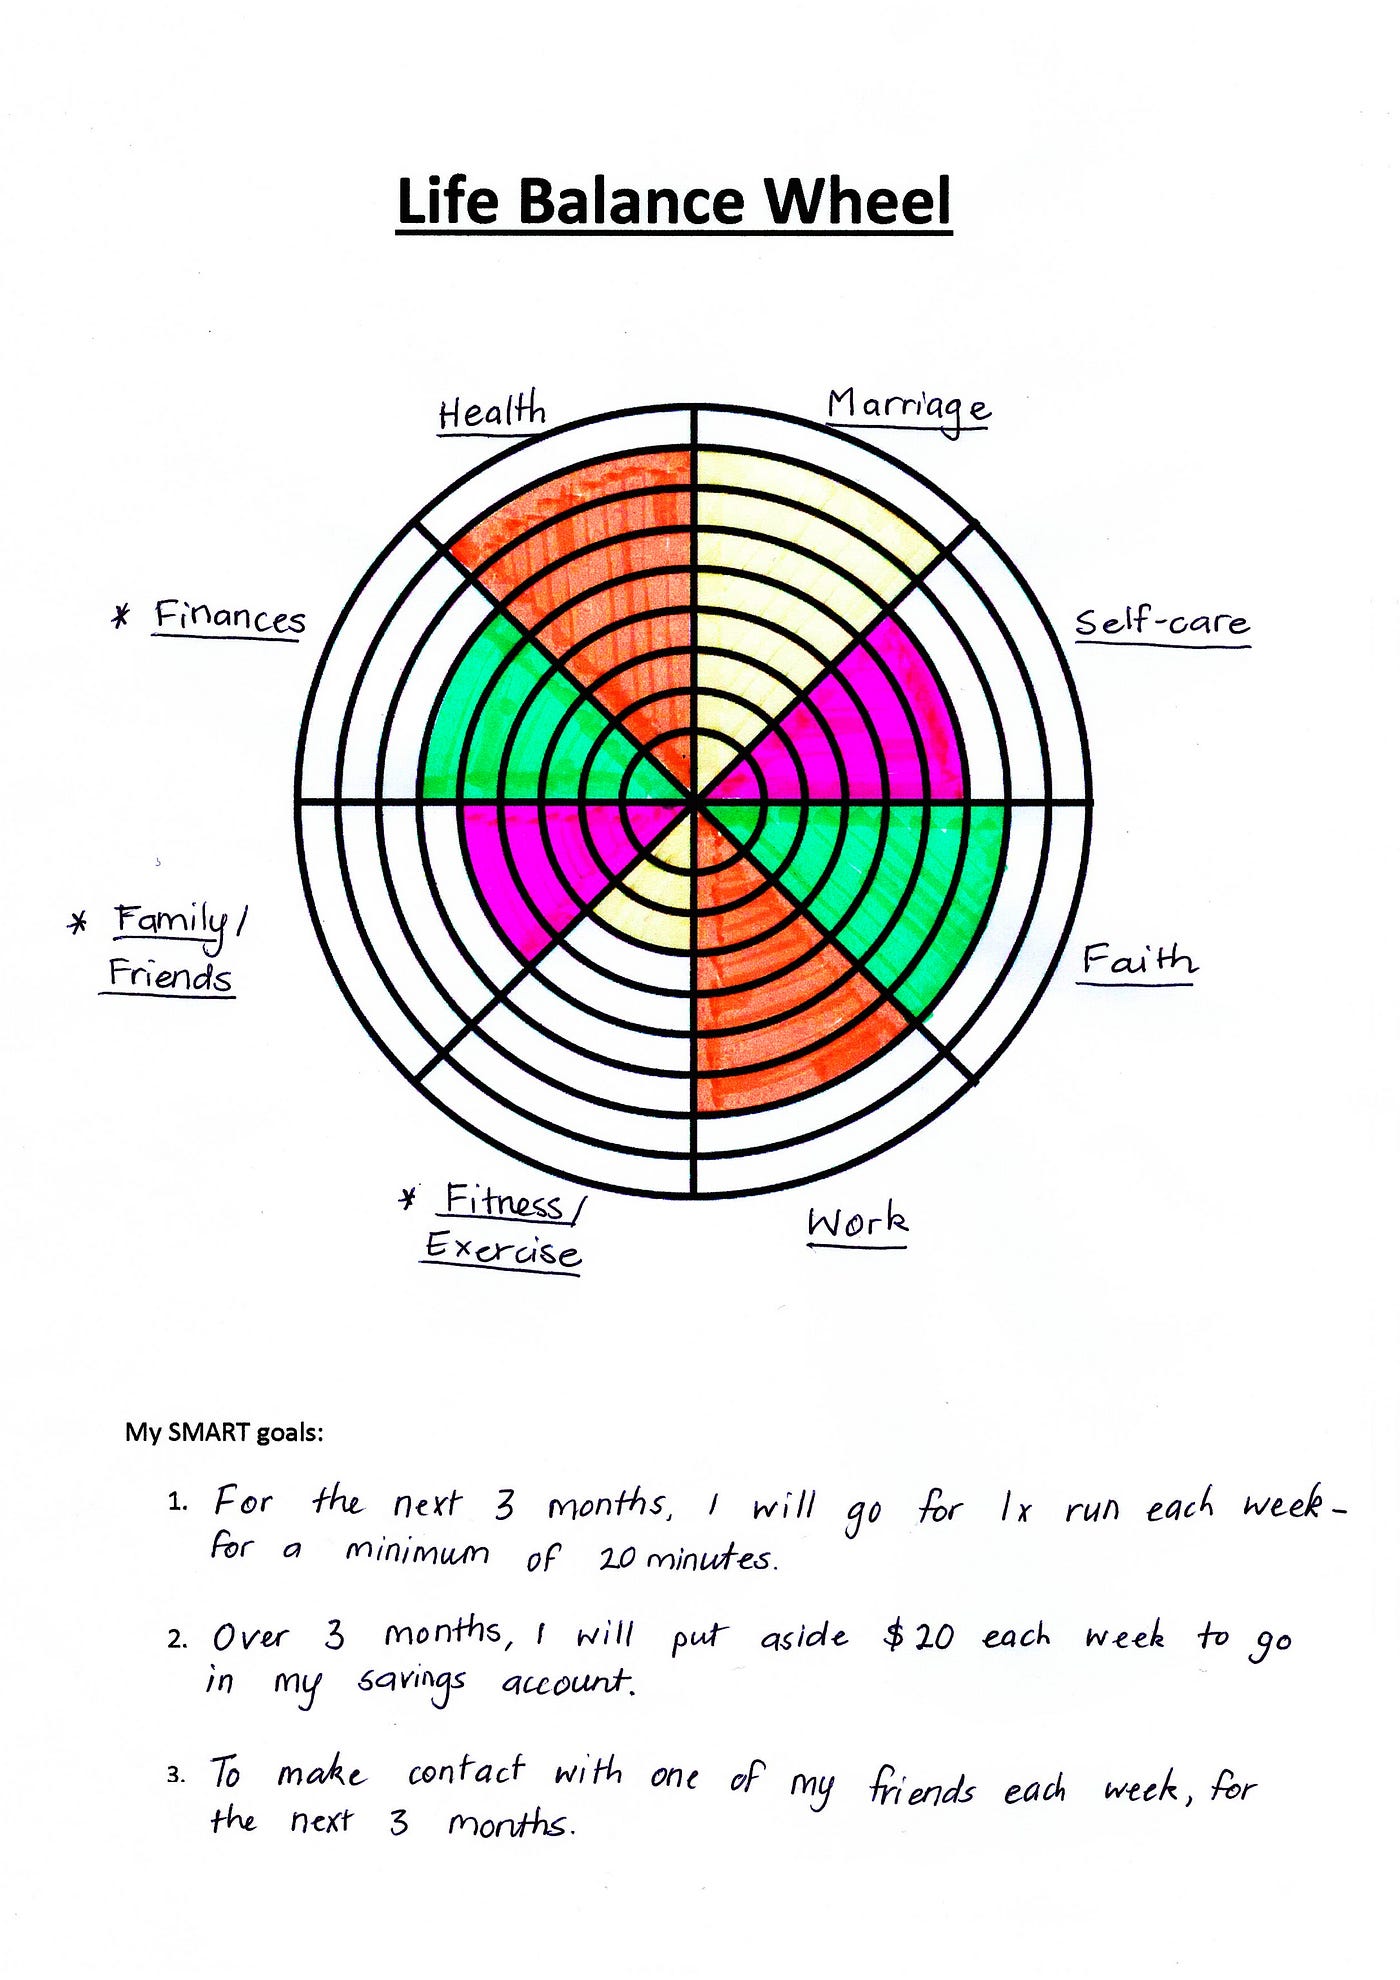 Life Balance Wheel
Health
Marriage
* Finances
Self-care
* Family/
Friends
Faith
* Fitness/
Exercise
Work
My SMART goals:
1. For the next 3 months, I will go for 1x run each week-
for a minimum of 20 minutes.
2. Over 3 months, I will put aside $20 each week to go
in my savings account.
3. To make contact with one of my friends each week, for
the next 3 months.